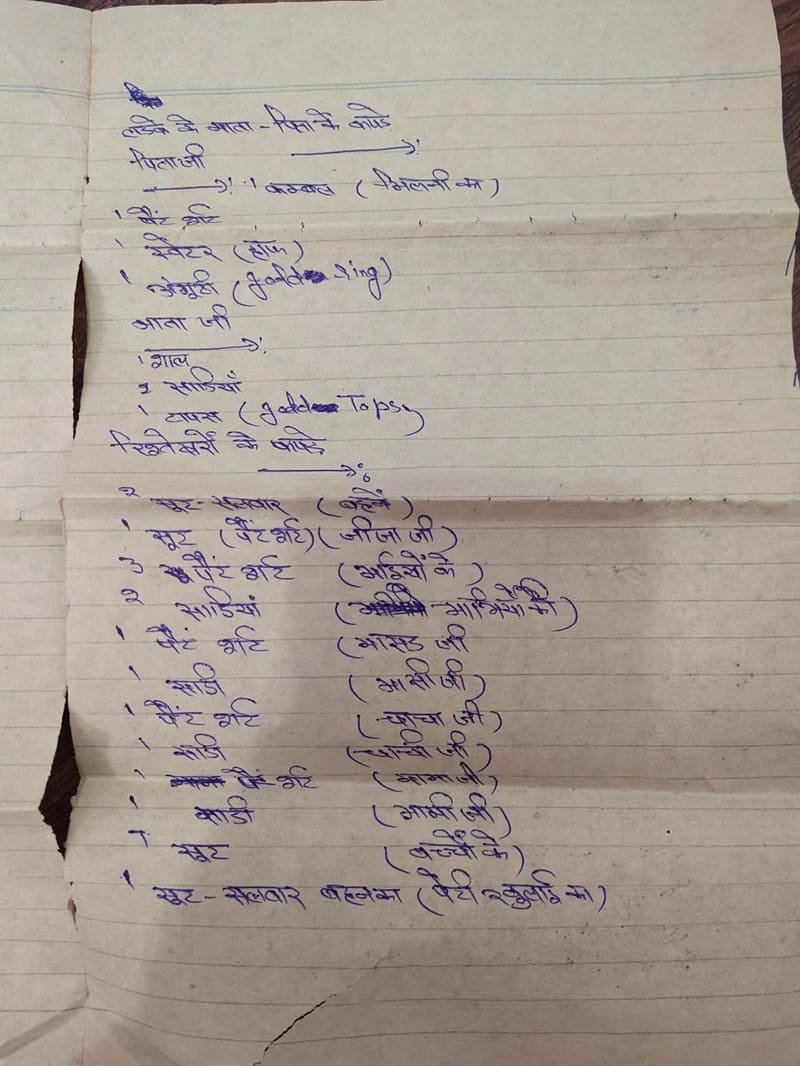 लडके के माता - पिता के कपडे
पिताजी
1 कम्बल ( मिलनी का )
1 पैंट शर्ट
1 स्वेटर (हाफ)
1 अंगुठी (gold ring)
माता जी
1 शाल
2 साडियाँ
1 टापस (gold Topsy
रिश्तेदारों के कपडे
2 सूट - सलवार (बहनें)
1 सूट (पैंट शर्ट) (जीजा जी)
3 पैंट शर्ट (भाईयों के)
2 साडियां (भाभियों की)
1 पैंट शर्ट (मासड जी
1 साडी (मासी जी)
1 पैंट शर्ट (चाचा जी)
1 साडी (चाची जी)
1 पैंट शर्ट (मामा जी)
1 साडी (मामी जी)
7 सूट (बच्चों के)
1 सूट - सलवार बहनका (पेटी खुलाई का)